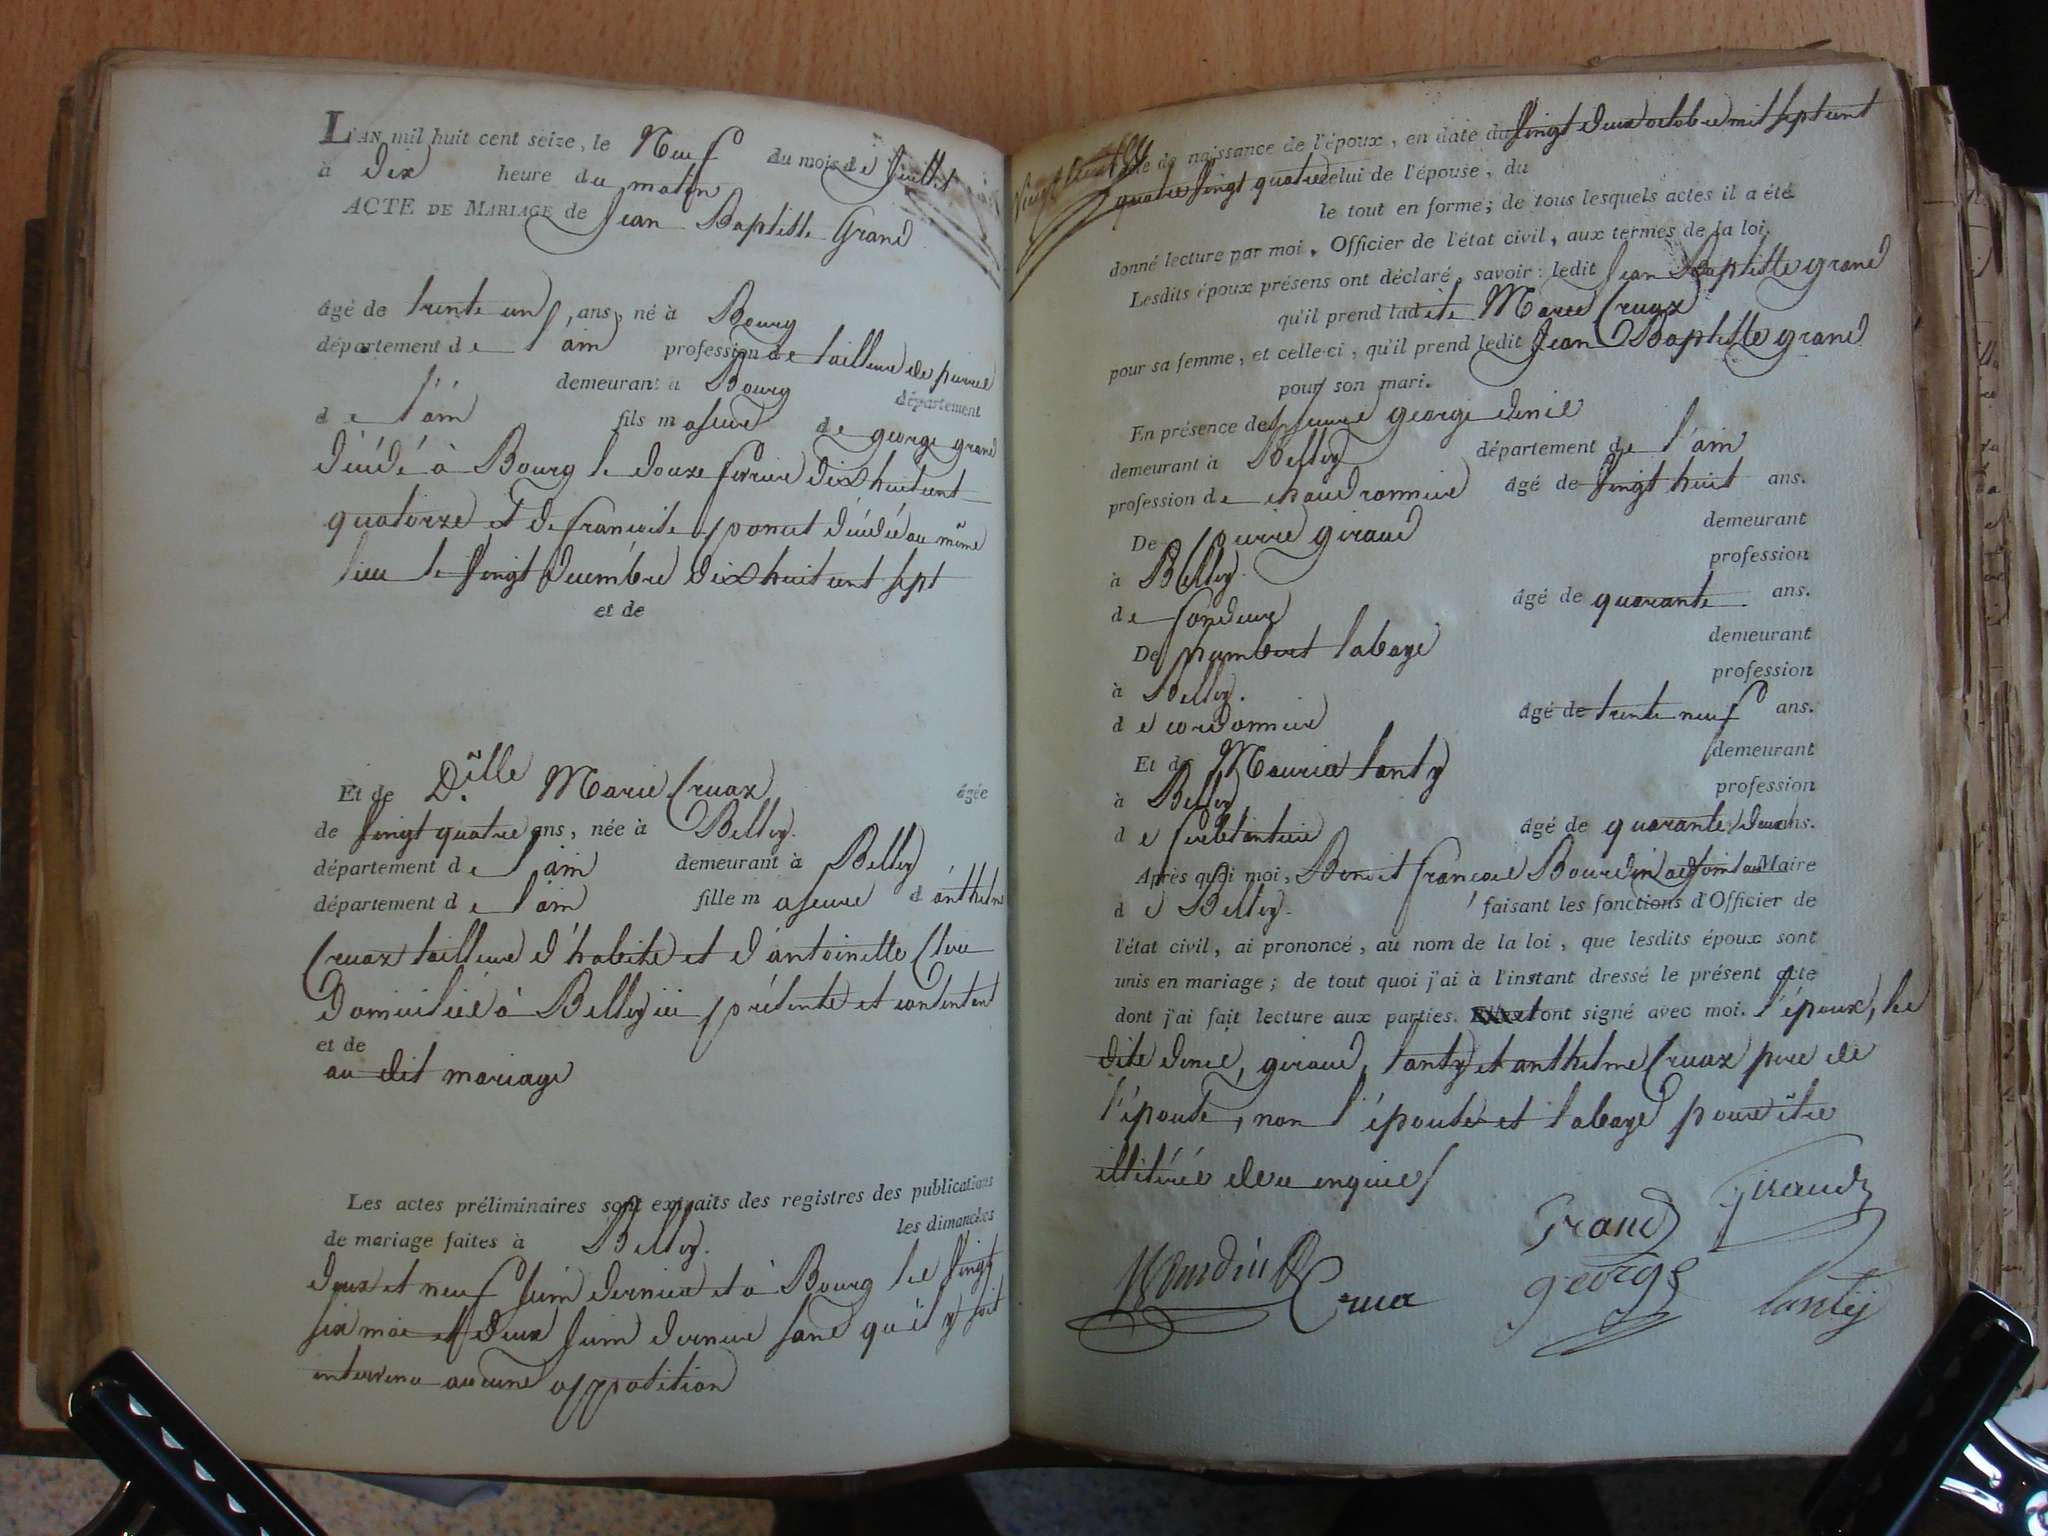 L'AN mil huit cent seize, le Neuf du mois de Juillet
à dix heure du matin
ACTE DE MARIAGE de Jean Baptiste Grand
âgé de trente un ans, né à Bourg
département de l'ain profession de tailleur de pierres
demeurant à Bourg département
de l'ain fils majeur de george grand
décédé à Bourg le douze fevrier dix huit cent
quatorze et de francoise poncet décédée au même
lieu le vingt decembre dix huit cent sept
et de
Et de D.lle Marie Cruax âgée
de vingt quatre ans, née à Belley.
département de l'ain demeurant à Belley
département de l'ain fille majeure d'anthelme
Cruax tailleur d'habits et d'antoinette
domiciliés à Belley ici présents et consentent
et de
au dit mariage
Les actes préliminaires sont extraits des registres des publications
de mariage faites à Belley. les dimanches
deux et neuf Juin dernier et à Bourg les vingt
six mai et deux Juin dernier sans qu'il y soit
intervenu aucune opposition
acte de naissance de l'époux, en date du vingt deux octobre mil sept cent
quatre vingt quatre celui de l'épouse, du
le tout en forme; de tous lesquels actes il a été
donné lecture par moi, Officier de l'état civil, aux termes de la loi.
Lesdits époux présens ont déclaré, savoir: ledit Jean Baptiste grand
qu'il prend ladite Marie Cruax
pour sa femme, et celle-ci, qu'il prend ledit Jean Baptiste grand
pour son mari.
En présence de pierre george denis
demeurant à Belley département de l'ain
profession de chaudronnier âgé de vingt huit ans.
De pierre giraud demeurant
à Belley. profession
de fondeur âgé de quarante ans.
De humbert labaye demeurant
à Belley. profession
de cordonnier âgé de trente neuf ans.
Et de Maurice lanty demeurant
à Belley profession
de ferblantier âgé de quarante deux ans.
Après quoi moi, Benoit francois Bourdin adjoint au Maire
de Belley. faisant les fonctions d'Officier de
l'état civil, ai prononcé, au nom de la loi, que lesdits époux sont
unis en mariage; de tout quoi j'ai à l'instant dressé le présent acte
dont j'ai fait lecture aux parties. ont signé avec moi. l'époux, les
dits denis, giraud, lanty et anthelme Cruax pere de
l'épouse, non l'épouse et labaye pour être
illitérés de ce enquis
Grand giraud
Bourdin Cruax george lantÿ